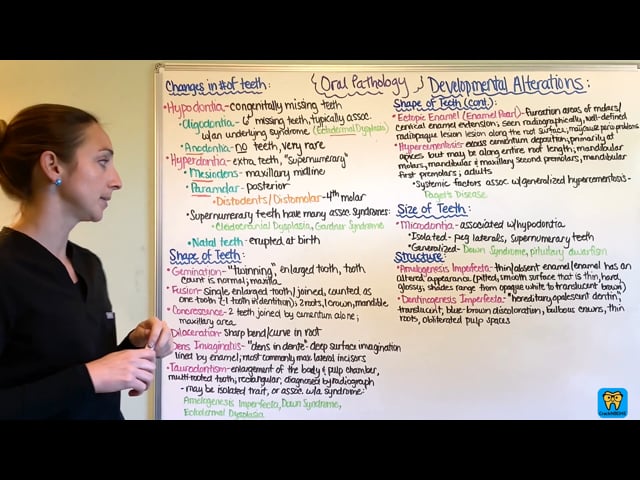 {Oral Pathology} Developmental Alterations:
Changes in # of teeth:
•Hypodontia-congenitally missing teeth
•Oligodontia- 6+ missing teeth, typically assoc.
w/an underlying syndrome (Ectodermal Dysplasia)
•Anodontia-no teeth, very rare
•Hyperdontia-extra teeth, "supernumerary"
•Mesiodens-maxillary midline
•Paramolar-posterior
•Distodents/Distomolar-4th molar
•Supernumerary teeth have many assoc. syndromes:
-Cleidocranial Dysplasia, Gardner Syndrome
•Natal teeth-erupted at birth
Shape of Teeth:
•Gemination-"twinning", enlarged tooth, tooth
count is normal; maxilla
•Fusion-single enlarged tooth/joined, counted as
one tooth (-1 tooth in dentition); 2 roots, 1 crown, mandible
•Concrescence-2 teeth joined by cementum alone;
maxillary area
•Dilaceration-sharp bend/curve in root
•Dens Invaginatus-"dens in dente"-deep surface invagination
lined by enamel; most commonly max lateral incisors
•Taurodontism-enlargement of the body & pulp chamber,
multi-rooted tooth, rectangular, diagnosed by radiograph
-may be isolated trait, or assoc. w/a syndrome-
Amelogenesis Imperfecta, Down Syndrome,
Ectodermal Dysplasia
Shape of Teeth (cont.):
•Ectopic Enamel (Enamel Pearl)-furcation areas of molars/
cervical enamel extension; seen radiographically, well-defined
radiopaque lesion along the root surface, may cause perio problems
•Hypercementosis-excess cementum deposition, primarily at
apices but may be along entire root length, mandibular
molars, mandibular & maxillary second premolars, mandibular
first premolars; adults
•Systemic factors assoc w/generalized hypercementosis-
Paget's Disease
Size of Teeth:
•Microdontia-associated w/hypodontia
•Isolated- peg laterals, supernumerary teeth
•Generalized-Down Syndrome, pituitary dwarfism
Structure:
•Amelogenesis Imperfecta- thin/absent enamel (enamel has an
altered appearance (pitted, smooth surface that is thin, hard,
glossy, shades range from opaque white to translucent brown)
•Dentinogenesis Imperfecta-"hereditary opalescent dentin",
translucent, blue-brown discoloration, bulbous crowns, thin
roots, obliterated pulp spaces